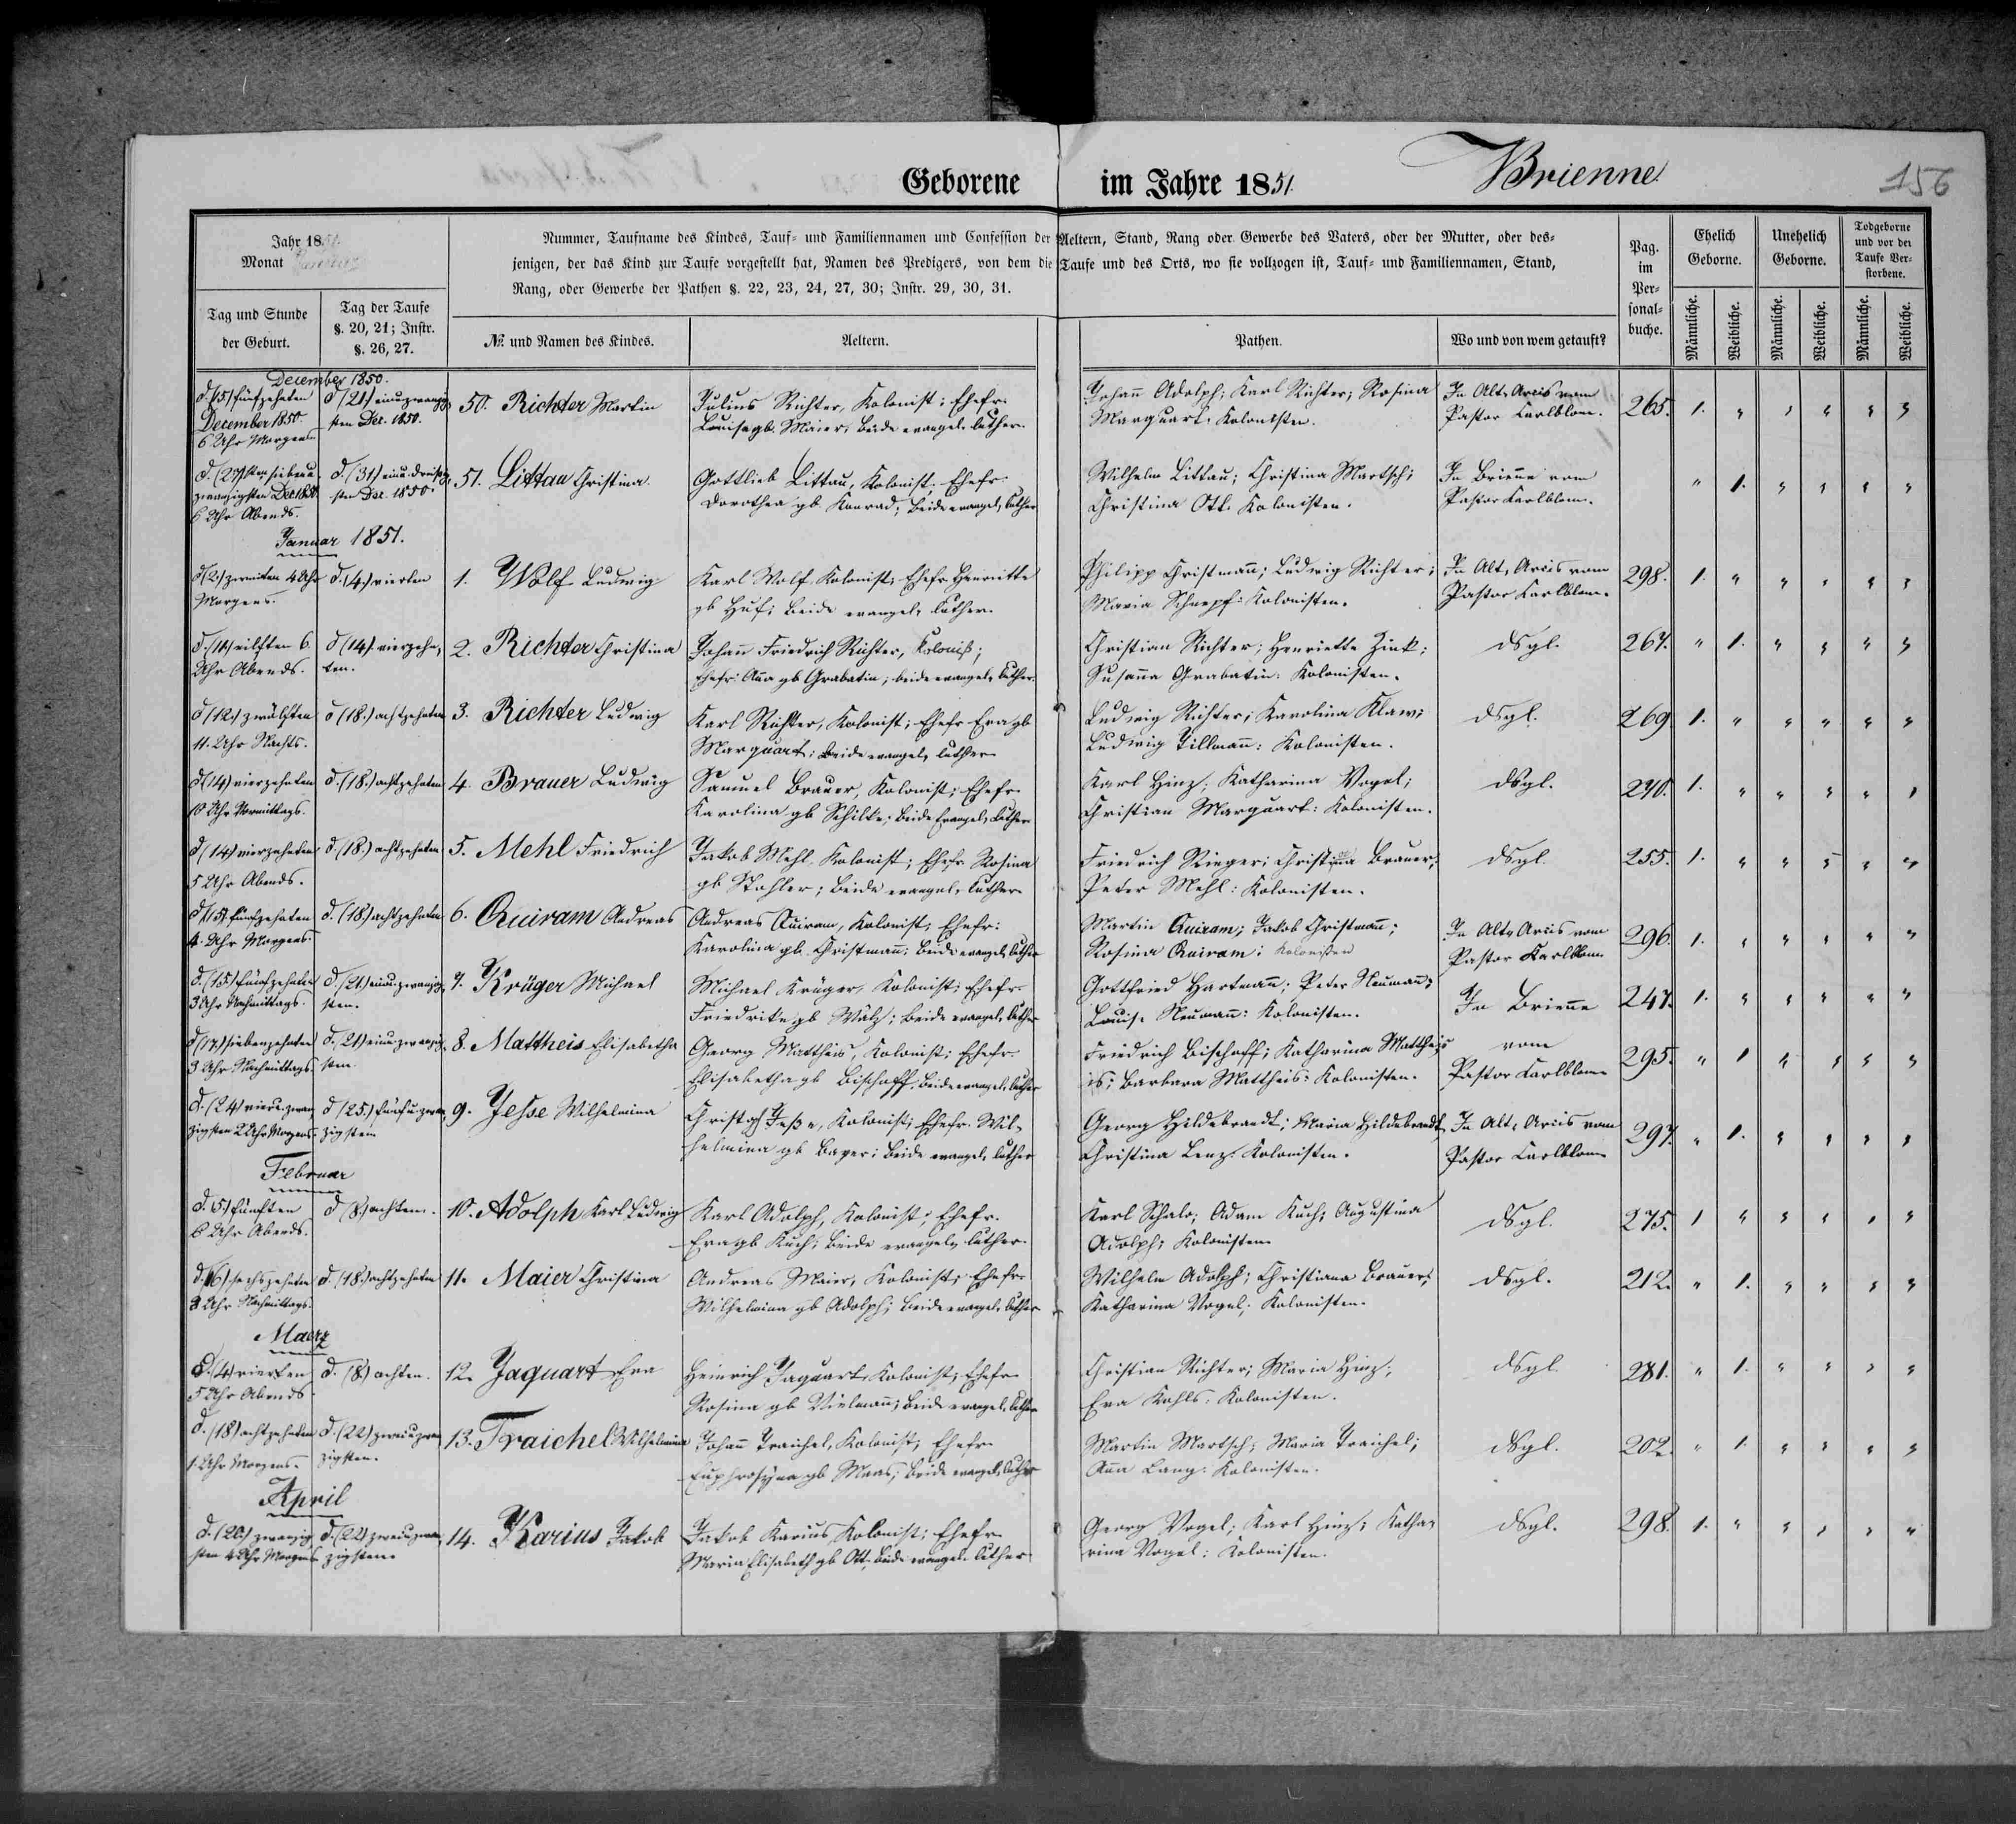 Geborene im Jahre 1851. Brienne
156
Jahr 1851.
Monat
Nummer, Taufname des Kindes, Tauf- und Familiennamen und Confession der Aeltern, Stand, Rang oder Gewerbe des Vaters, oder der Mutter, oder des-
jenigen, der das Kind zur Taufe vorgestellt hat, Namen des Predigers, von dem die Taufe und des Orts, wo sie vollzogen ist, Tauf- und Familiennamen, Stand,
Rang, oder Gewerbe der Pathen §. 22, 23, 24, 27, 30; Instr. 29, 30, 31.
Tag und Stunde
der Geburt.
Tag der Taufe
§. 20, 21; Instr.
§. 26, 27.
№ und Namen des Kindes.
Aeltern.
Pathen.
Wo und von wem getauft?
Pag.
im
Per-
sonal-
buche.
Ehelich
Geborne.
Unehelich
Geborne.
Todgeborne
und vor der
Taufe Ver-
storbene.
Männliche.
Weibliche.
Männliche.
Weibliche.
Männliche.
Weibliche.
December 1850.
d. (15) fünfzehnten
December 1850.
6 Uhr Morgens
d (21) einuzwanzig
sten Dec. 1850.
50. Richter Martin
Julius Richter, Kolonist; Ehefr.
Louisa gb. Maier, beide evangel. luther.
Johann Adolph; Karl Richter; Rosina
Marquart. Kolonisten.
In Alt-Arcis vom
Pastor Karlblom.
265. 1. " " " " "
d. (27)sten siebenu
zwanzigsten Dec. 1850.
6 Uhr Abends.
d. (31) einu.dreißig
sten Dec. 1850.
51. Littau Christina
Gottlieb Littau, Kolonist; Ehefr.
Dorothea gb. Konrad; beide evangel. luther
Wilhelm Littau; Christina Martsch;
Christina Ott. Kolonisten.
In Brienne vom
Pastor Karlblom.
" 1. " " " "
Januar 1851.
d (2.) zweiten 4 Uhr
Morgens.
d. (4.) vierten
1. Wolf Ludwig
Karl Wolf Kolonist; Ehefr. Henriette
gb Huf; beide evangel. luther.
Philipp Christmann; Ludwig Richter;
Maria Schnepf: Kolonisten.
In Alt-Arcis vom
Pastor Karlblom.
298. 1. " " " " "
d. (11) eilften 6.
Uhr Abends.
d (14). vierzehn-
ten.
2. Richter Christina
Johann Friedrich Richter, Kolonist;
Ehefr: Anna gb Grabatin; beide evangel. luther.
Christian Richter; Henriette Zink;
Susanna Grabatin: Kolonisten.
dsgl.
267. " 1. " " " "
d (12.) zwölften
11. Uhr Nachts.
d (18.) achtzehnten
3. Richter Ludwig
Karl Richter, Kolonist; Ehefr Eva gb
Marquart; beide evangel. luther
Ludwig Richter; Karolina Klaw;
Ludwig Tillmann: Kolonisten.
dsgl.
269. 1. " " " " "
d (14) vierzehnten
10 Uhr Vormittags.
d. (18.) achtzehnten
4. Brauer Ludwig
Samuel Brauer, Kolonist; Ehefr.
Karolina gb Schilke; beide Evangel. luther
Karl Hinz; Katharina Vogel;
Christian Marquart: Kolonisten.
dsgl.
240. 1. " " " " "
d (14) vierzehnten
5 Uhr Abends.
d. (18.) achtzehnten
5. Mehl Friedrich
Jakob Mehl, Kolonist; Ehefr. Rosina
gb Stohler; beide evangel. luther
Friedrich Rieger; Christina Brauer;
Peter Mehl: Kolonisten.
dsgl.
255. 1. " " " " "
d (15.) fünfzehnten
4. Uhr Morgens.
d. (18.) achtzehnten
6. Quiram Andreas
Andreas Quiram, Kolonist; Ehefr:
Karolina gb Christmann; beide evangel. luther
Martin Quiram; Jakob Christmann;
Rosina Quiram: Kolonisten
In Alt-Arcis vom
Pastor Karlblom
296. 1. " " " " "
d. (15) fünfzehnten
3 Uhr Nachmittags.
d. (21) einu.zwanzig
sten.
7. Krüger Michael
Michael Krüger, Kolonist; Ehefr.
Friedrike gb Wälz; beide evangel. luther
Gottfried Hartmann; Peter Neumann;
Louise Neumann: Kolonisten.
In Brienne
247. 1. " " " " "
d (17.) siebenzehnten
3 Uhr Nachmittags.
d. (21) einu.zwanzig
sten
8. Mattheis Elisabetha
Georg Mattheis, Kolonist; Ehefr.
Elisabetha gb Bischoff, beide evangel. luther
Friedrich Bischoff; Katharina Matthe-
is; Barbara Mattheis: Kolonisten.
vom
Pastor Karlblom
295. " 1 " " " "
d. (24) vieru.zwan
zigsten 2 Uhr Morgens.
d (25.) fünfu.zwan
zigsten
9. Jesse Wilhelmina
Christoph Jeße, Kolonist; Ehefr. Wil-
helmina gb Bayer; beide evangel. luther
Georg Hildebrandt; Maria Hildebrandt
Christina Lenz: Kolonisten.
In Alt-Arcis vom
Pastor Karlblom
297. " 1. " " " "
Februar
d. (5.) fünften
6 Uhr Abends.
d (8.) achten.
10. Adolph Karl Ludwig
Karl Adolph, Kolonist; Ehefr.
Eva gb Kuch; beide evangel. luther.
Karl Schalo; Adam Kuch; Augustina
Adolph; Kolonisten
dsgl.
275. 1 " " " " "
d. (16) sechszehnten
3 Uhr Nachmittags.
d. (18.) achtzehnten
11. Maier Christina
Andreas Maier, Kolonist; Ehefr.
Wilhelmina gb Adolph; beide evangel. luther
Wilhelm Adolph; Christiana Brauer;
Katharina Vogel; Kolonisten.
dsgl.
212. " 1. " " " "
Maerz
d. (4) vierten
5 Uhr Abends
d. (8.) achten.
12. Jaquart Eva
Heinrich Jaquart, Kolonist; Ehefr.
Rosina gb Vielmann; beide evangel. luther
Christian Richter; Maria Hinz;
Eva Kohls: Kolonisten.
dsgl
281. " 1. " " " "
d. (18) achtzehnten
1. Uhr Morgens.
d. (22) zweiu.zwan
zigsten.
13. Traichel Wilhelmina
Johann Traichel, Kolonist; Ehefr.
Euphrosyna gb Maas; beide evangel. luther
Martin Martsch; Maria Traichel;
Anna Lang: Kolonisten.
dsgl.
202. " 1. " " " "
April
d. (20.) zwanzig
sten 4 Uhr Morgens
d. (22) zweiu.zwan
zigsten.
14. Karius Jakob
Jakob Karius Kolonist; Ehefr.
Maria Elisabeth gb Ott, beide evangel. luther
Georg Vogel; Karl Hinz; Katha-
rina Vogel: Kolonisten.
dsgl.
298. 1. " " " " "